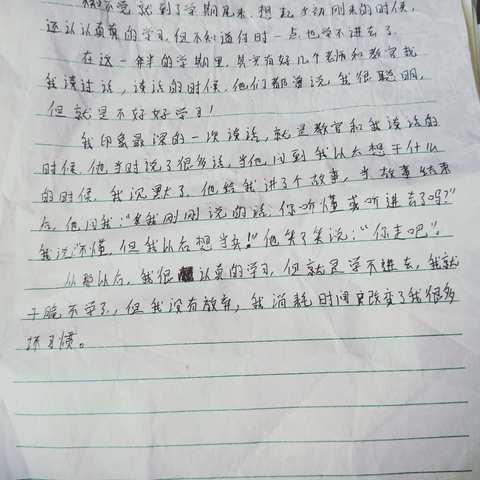 不觉就到了学期尾末，想起个动刚来的时候，
还认认真真的学习，但不知道何时一点也学不进去了。
在这一年的学期里，其实有好几个老师和教官找
我谈过话，谈话的时候，他们都曾说我很聪明，
但就是不好好学习！
我印象最深的一次谈话，就是教官和我谈话的
时候，他当时说了很多话，当他问到我以后想干什么
的时候，我沉默了。他给我讲了个故事，当故事结束
后，他问我：“我刚刚说的话，你听懂或听进去了吗？”
我说“不懂，但我以后想当兵！”他笑了笑说：“你走吧”。
从那以后，我很认真的学习，但就是学不进去，我就
干脆不学了，但我没有放弃，我消耗时间改变了我很多
坏习惯。